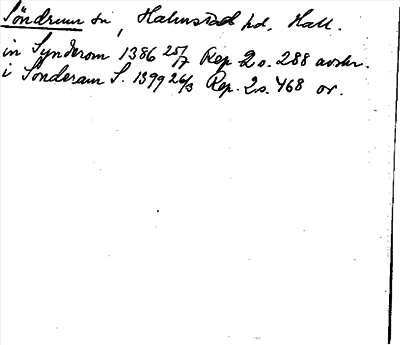 Söndrum sn, Halmstad hd. Hall.
in Synderom 1386 25/7 Rep 2 s. 288 avskr.
i Sonderum S. 1399 26/3 Rep. 2 s. 468 or.